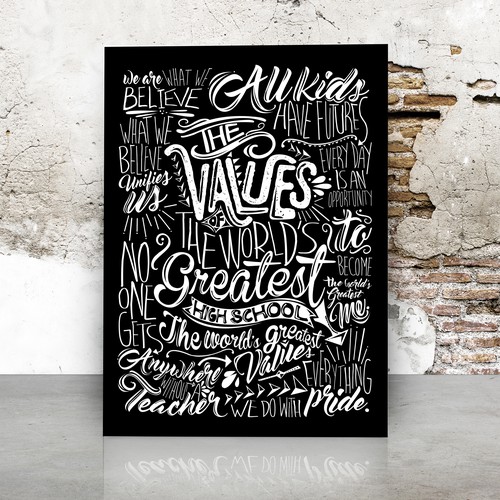 we are WHAT WE
BELIEVE
WHAT WE
BELIEVE
Unifies
us
All kids
HAVE FUTURES
EVERY DAY
IS AN
OPPORTUNITY
to
BECOME
the world's
Greatest
me
THE
VALUES
OF
THE WORLD'S
Greatest
HIGH SCHOOL
NO
ONE
GETS
Anywhere
WITHOUT A
Teacher
The world's greatest
Values
EVERYTHING
WE DO WITH
Pride.